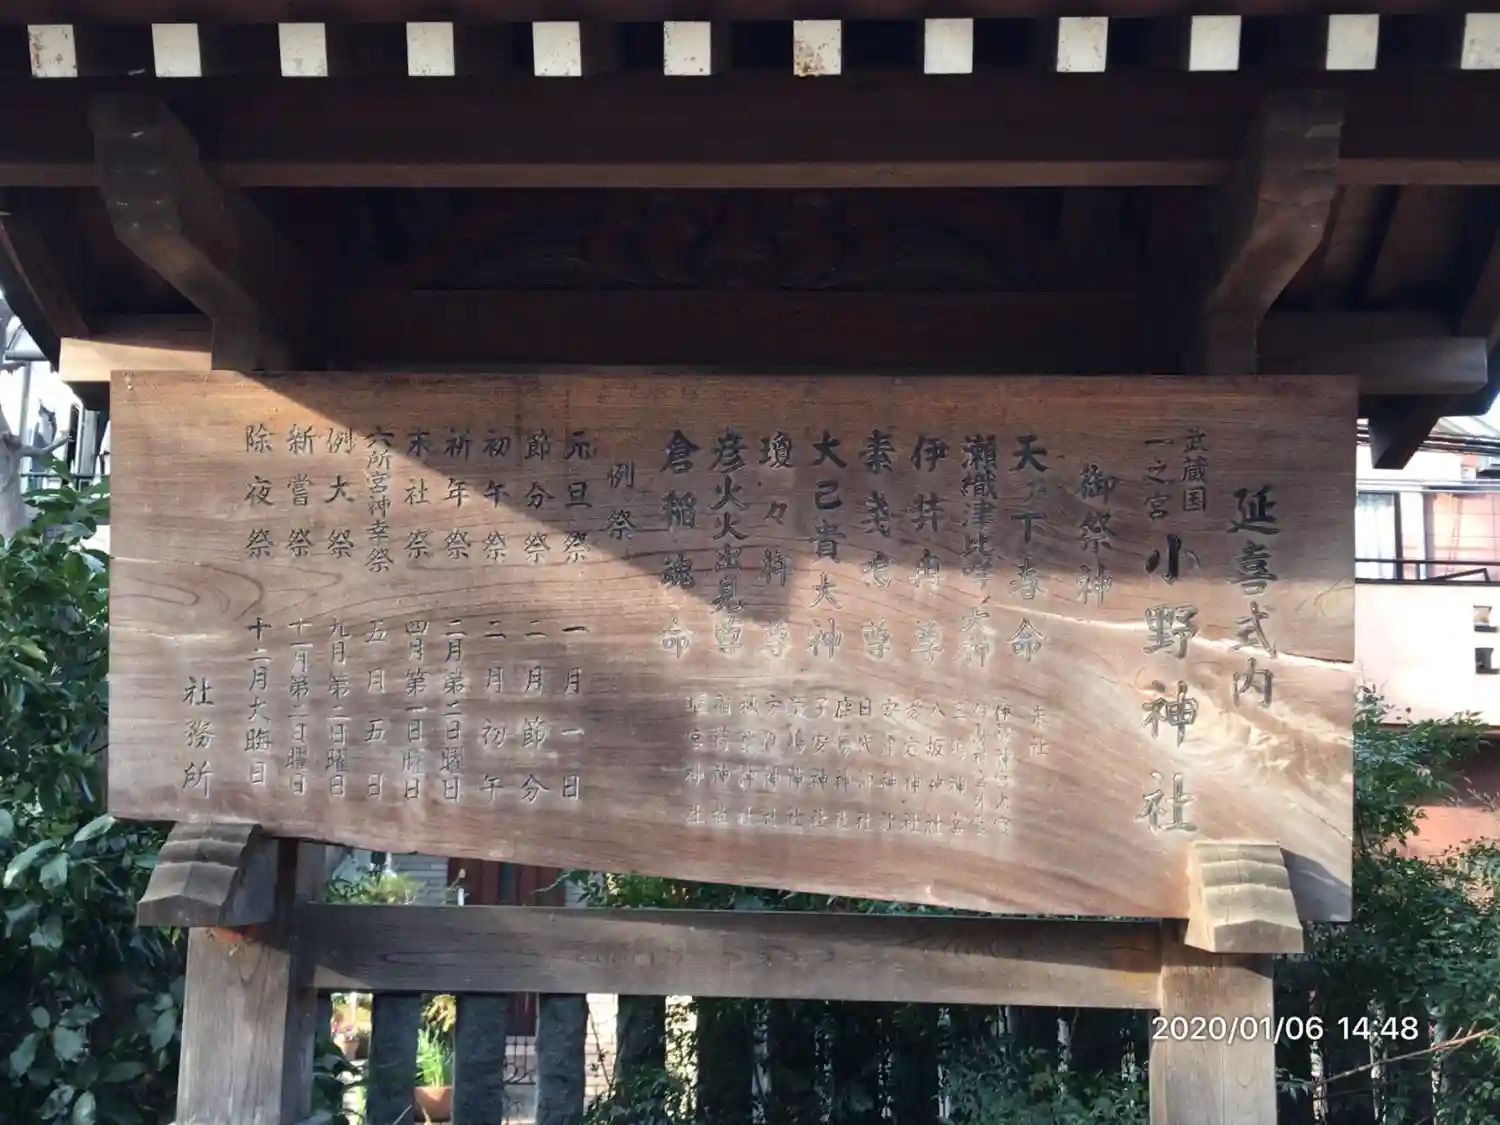 延喜式内
武蔵国
一之宮
小野神社
御祭神
天ノ下春命
瀬織津比咩ノ大神
伊弉冉尊
素戔嗚尊
大己貴大神
瓊々杵尊
彦火火出見尊
倉稲魂命
末社
三嶋神社
八坂神社
愛宕神社
日代神社
子安神社
秋葉神社
例祭
元旦祭 一月一日
節分祭 二月節分
初午祭 二月初午
祈年祭 二月第二日曜日
末社祭 四月第一日曜日
六所宮神幸祭 五月五日
例大祭 九月第二日曜日
新嘗祭 十一月第二日曜日
除夜祭 十二月大晦日
社務所
2020/01/06 14:48